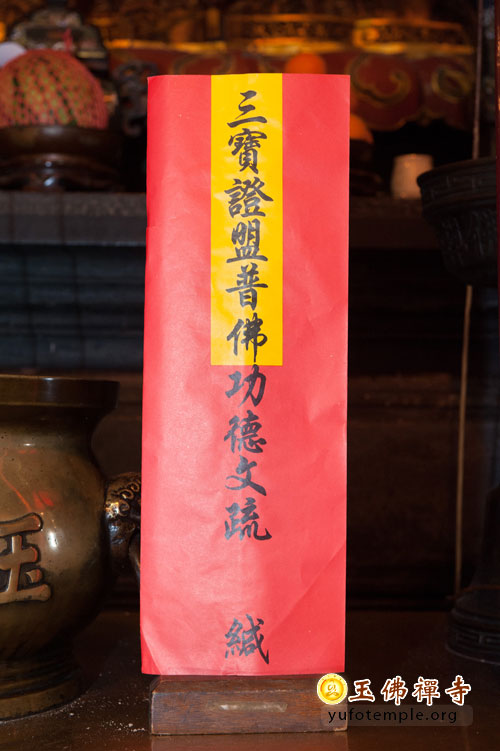 三寶證盟普佛功德文疏 緘
玉
玉佛禪寺
yufotemple.org